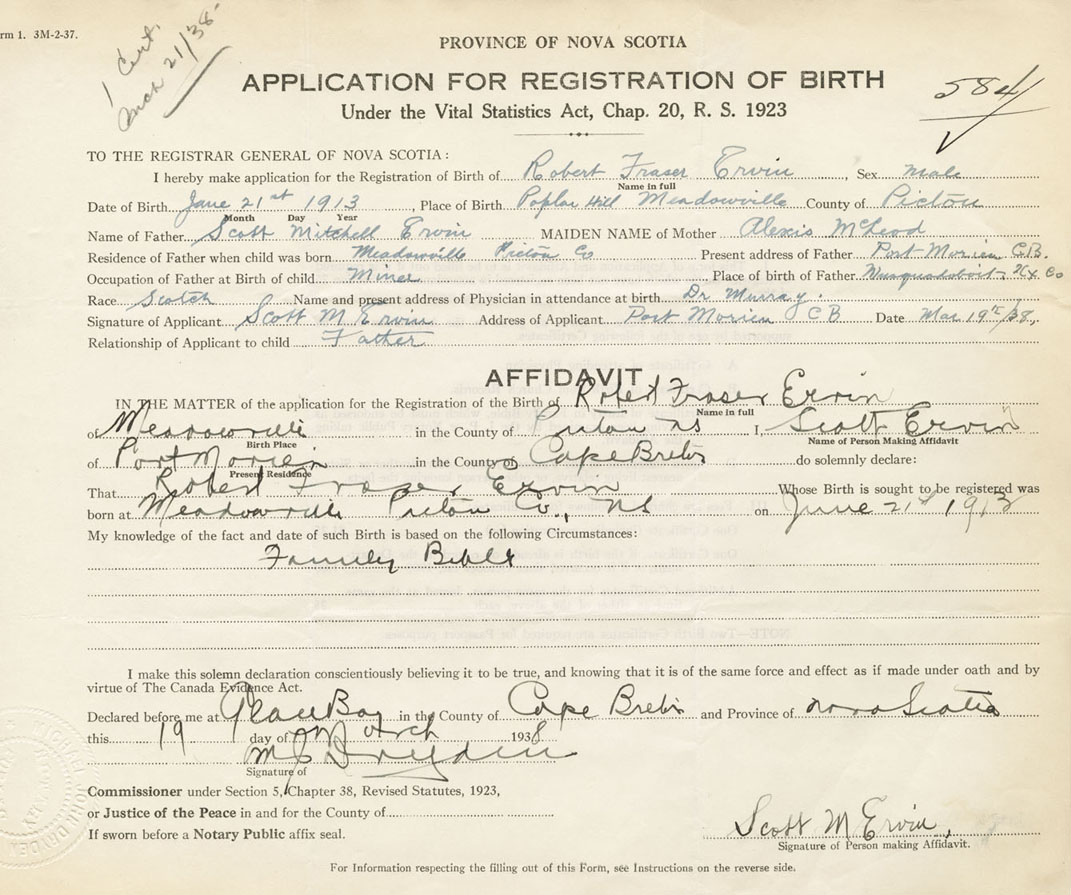 rm 1. 3M-2-37.
1 Cert.
Mch 21/38
PROVINCE OF NOVA SCOTIA
APPLICATION FOR REGISTRATION OF BIRTH
584
Under the Vital Statistics Act, Chap. 20, R. S. 1923
TO THE REGISTRAR GENERAL OF NOVA SCOTIA:
I hereby make application for the Registration of Birth of Robert Fraser Ervin, Sex male
Name in full
Date of Birth June 21st 1913, Place of Birth Poplar Hill Meadowville County of Pictou
Month Day Year
Name of Father Scott Mitchell Ervin MAIDEN NAME of Mother Alexis McLeod
Residence of Father when child was born Meadowville Pictou Co Present address of Father Port Morien C.B.
Occupation of Father at Birth of child Miner Place of birth of Father Musquodoboit Hx Co
Race Scotch Name and present address of Physician in attendance at birth Dr Murray.
Signature of Applicant Scott M Ervin Address of Applicant Port Morien C B Date Mar 19th/38
Relationship of Applicant to child Father
AFFIDAVIT
IN THE MATTER of the application for the Registration of the Birth of Robert Fraser Ervin
Name in full
of Meadowville in the County of Pictou NS I, Scott Ervin
Birth Place Name of Person Making Affidavit
of Port Morien in the County of Cape Breton do solemnly declare:
Present Residence
That Robert Fraser Ervin Whose Birth is sought to be registered was
born at Meadowville Pictou Co., NS on June 21st 1913
My knowledge of the fact and date of such Birth is based on the following Circumstances:
Family Bible
I make this solemn declaration conscientiously believing it to be true, and knowing that it is of the same force and effect as if made under oath and by
virtue of The Canada Evidence Act.
Declared before me at Glace Bay in the County of Cape Breton and Province of Nova Scotia
this 19 day of March 1938
Signature of
Commissioner under Section 5, Chapter 38, Revised Statutes, 1923,
or Justice of the Peace in and for the County of
If sworn before a Notary Public affix seal.
Scott M Ervin
Signature of Person making Affidavit.
For Information respecting the filling out of this Form, see Instructions on the reverse side.